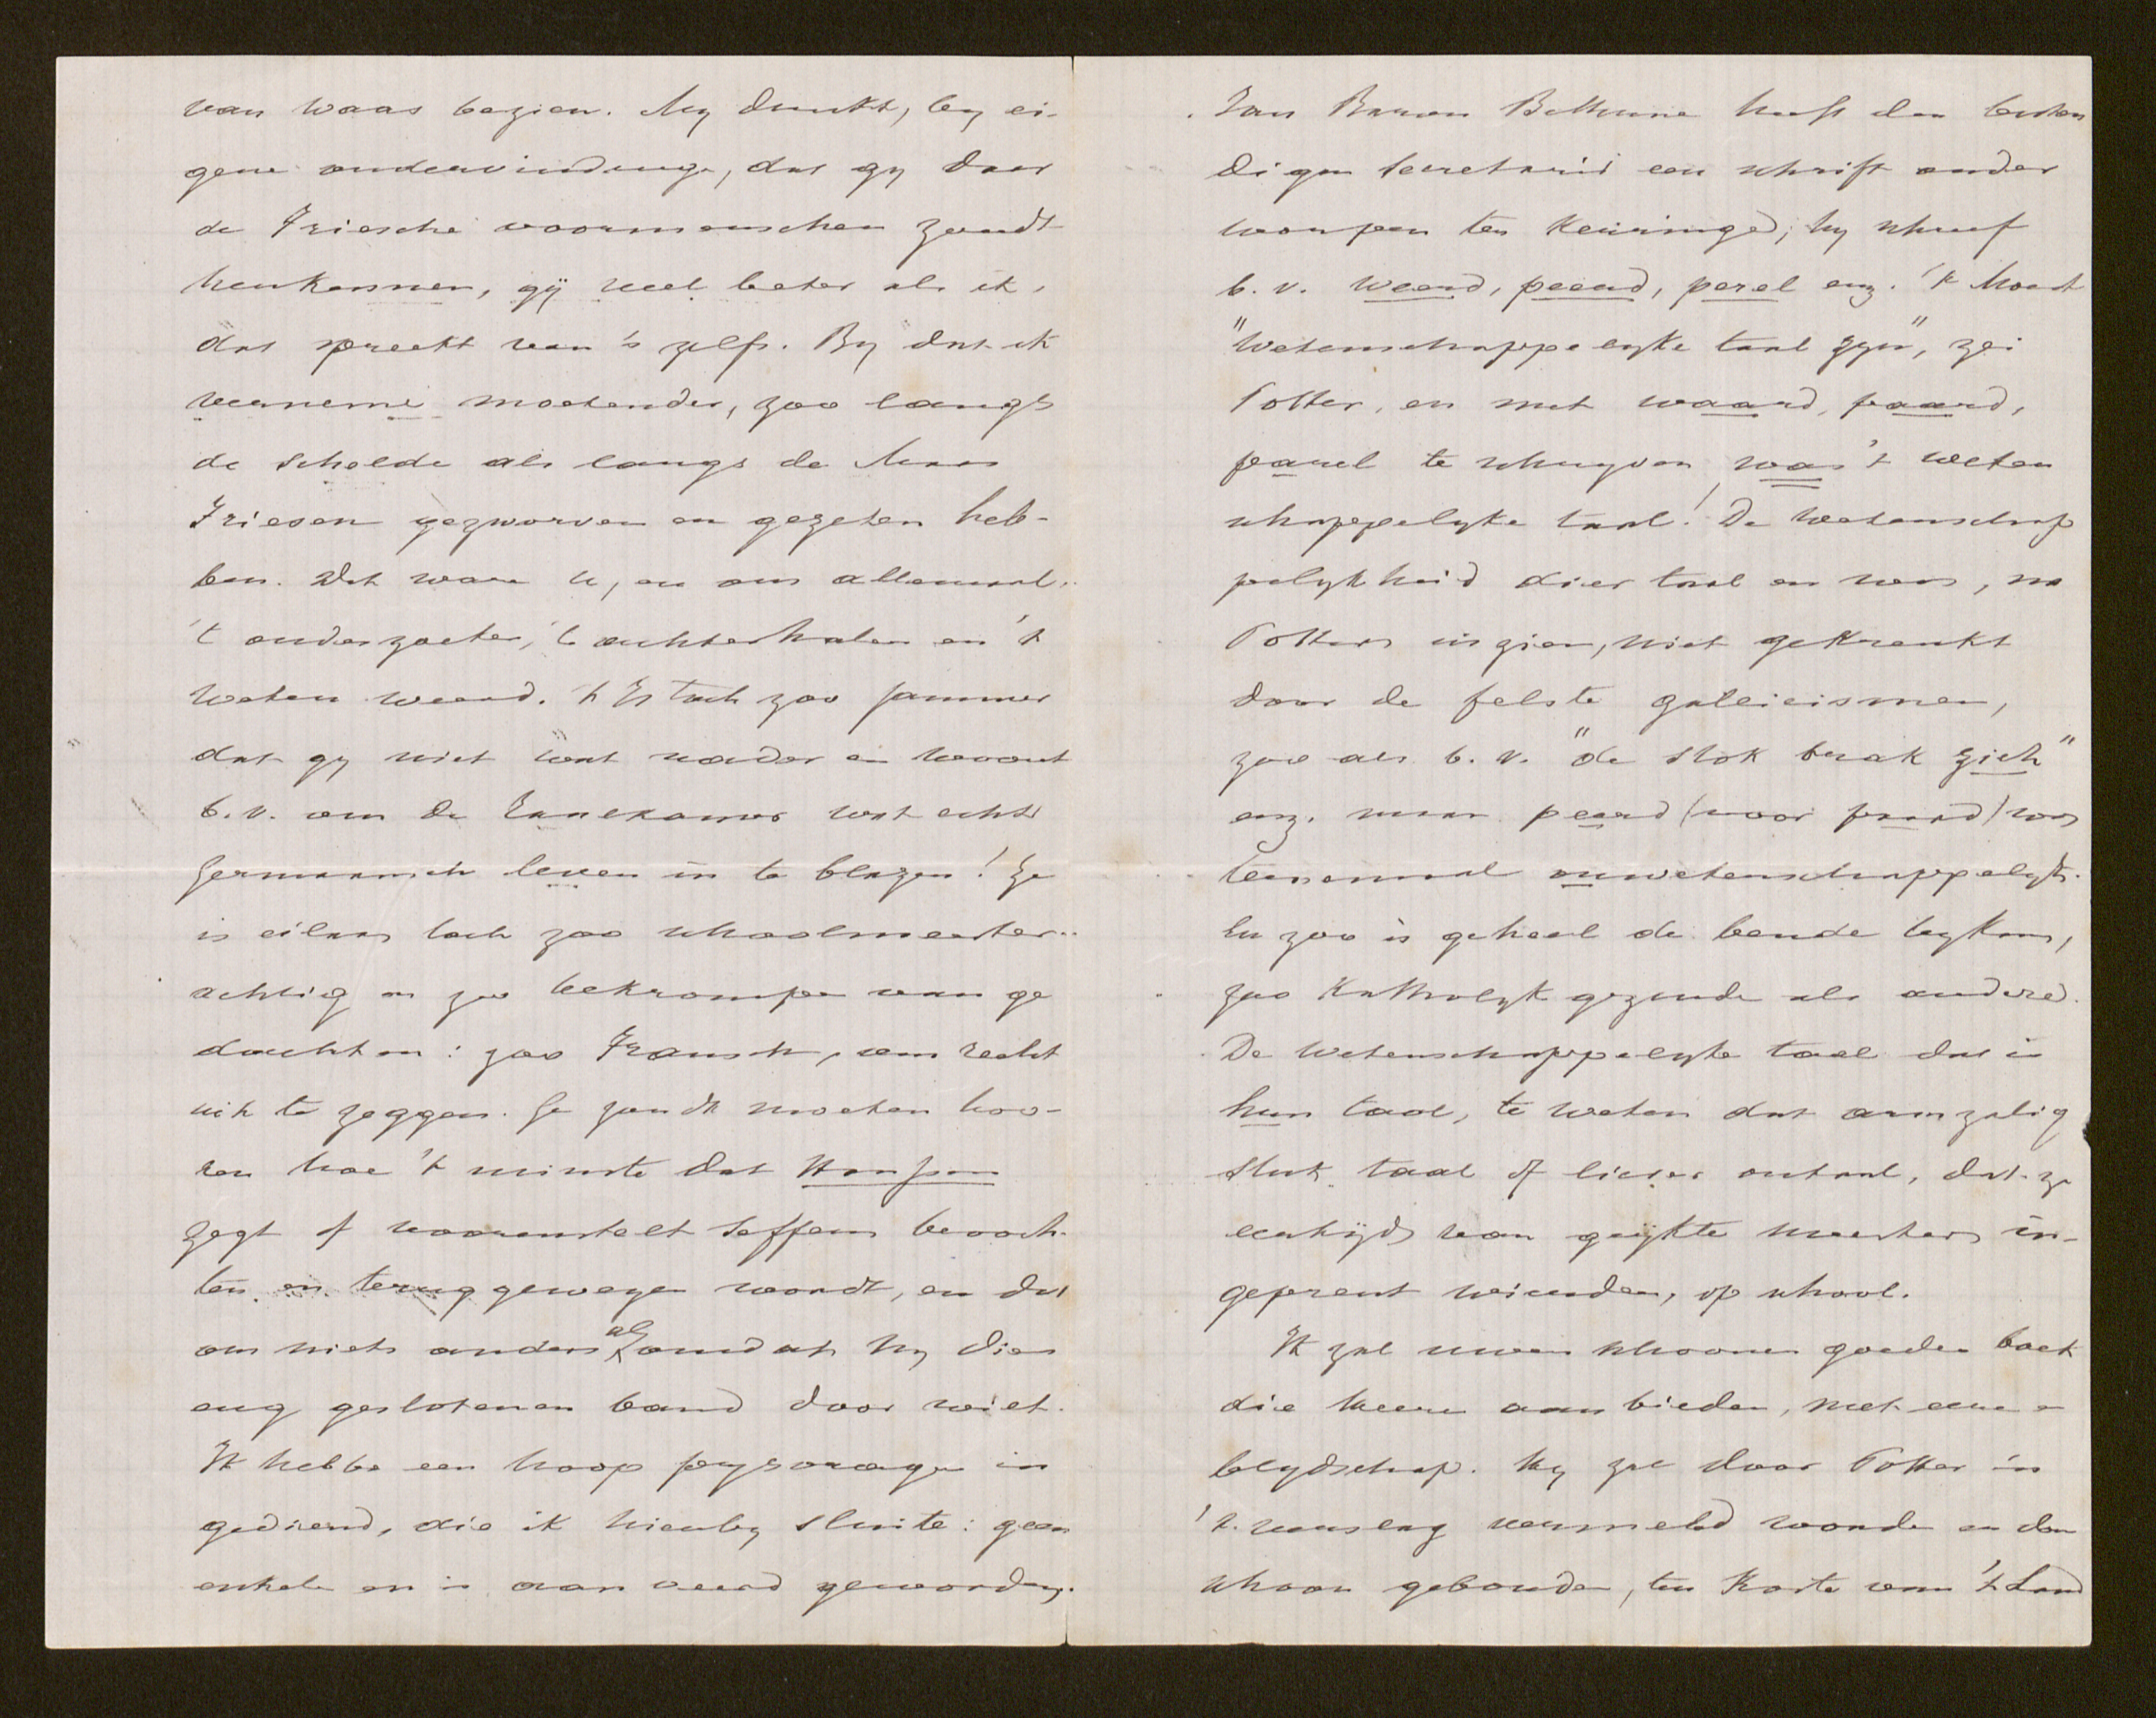 van Waas bezien. My dunkt, by ei-
gene ondervindinge, dat gy daar
de Friesche voormenschen zoudt
herkennen, gij veel beter als ik,
dat spreekt van 's zelfs. By dat ik
verneme moetender, zoo langs
de Schelde als langs de Maas
Friesen gezworven en gezeten heb-
ben. Dat ware u, en ons allemaal,
't onderzoeken, 't achterhalen en 't
weten weerd. 't Is toch zoo jammer
dat gy niet wat nader en woont
b.v. om de Taalkamer wat echt
Germaansch leven in te blazen! Ze
is eilaas toch zoo schoolmeester-
achtig en zoo bekrompen van ge
dachten: zoo Fransch, om recht
uit te zeggen. Ge zoudt moeten hoo-
ren hoe 't minste dat
zegt of voorenstelt seffens bevoch-
ten en teruggewezen wordt, en dat
om niets anders als omdat hy dien
eng geslotenen band door wilt.
Ik hebbe een hoop prysvragen in
gediend, die ik hierby sluite: geen
enkele en is aanveerd geworden.
Jan Baron Bethune heeft den besten
digen Secretaris een schrift onder
worpen ter keuringe; hy schreef
b.v. weerd, peerd, perel enz. 't Moest
"Wetenschappelyke taal zyn", zei
Potter, en met waard, paard,
parel te schryven was 't weten
schappelyke taal! De wetenschap
pelykheid dier taal en was, na
Potters inzien, niet gekrenkt
door de felste gallicismen,
zoo als b.v. "de stok brak zich"
enz. maar peerd (voor paard) was
teenemaal onwetenschappelyk.
En zoo is geheel de bende bykans,
zoo Katholyk gezinde als andere.
De Wetenschappelyke taal dat is
hun taal, te weten dat armzalig
stuk taal of liever ontaal, dat ze
eertijds van geijkte meesters in-
geprent wierden, op school.
Ik zal uwen schoonen goeden boek
die heeren aanbieden, met eene
blydschap. Hy zal door Potter in
't verslag vermeld worden en dan
schoon gebonden, ten koste van 't Land